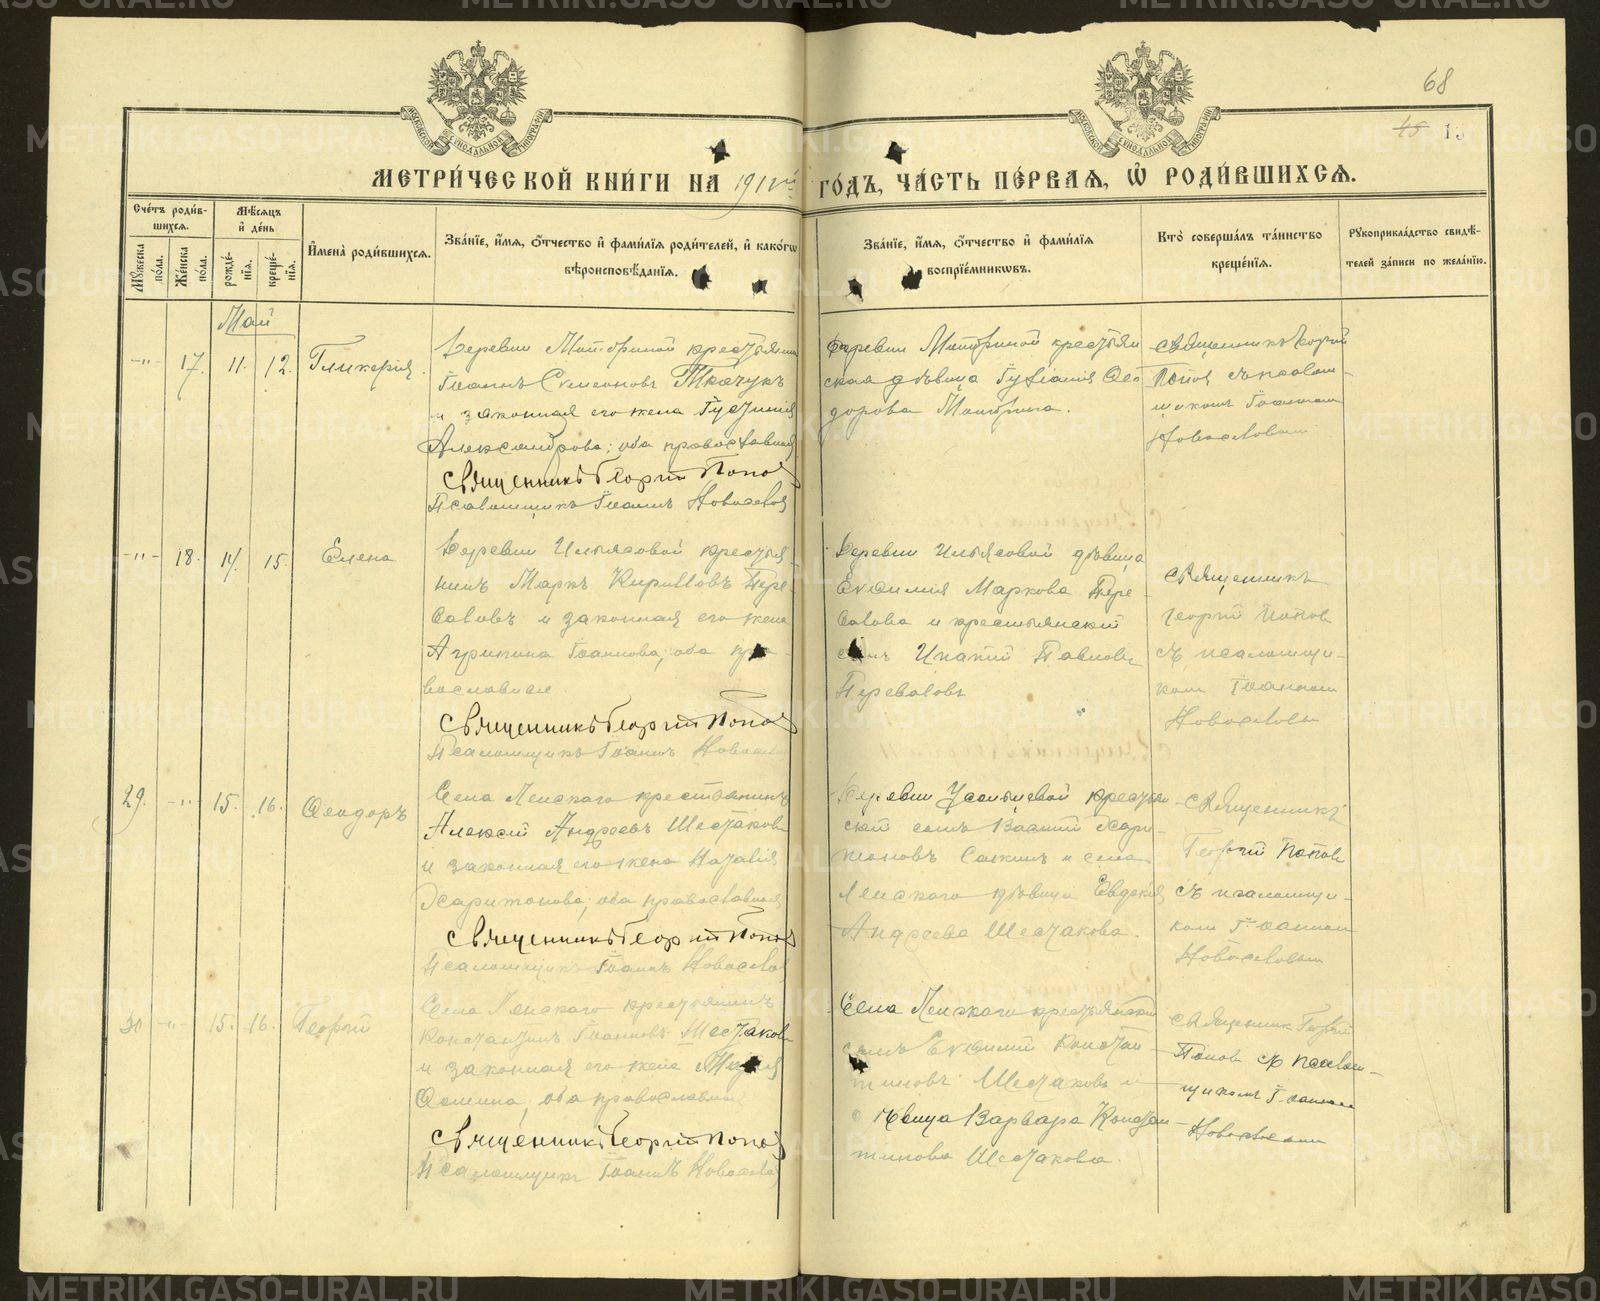 METRIKI.GASO-URAL.RU
68
45 13
МОСКОВСКОЙ СѴНОДАЛЬНОЙ ТИПОГРАФІИ
МОСКОВСКОЙ СѴНОДАЛЬНОЙ ТИПОГРАФІИ
МЕТРИ́ЧЕСКОЙ КНИ́ГИ НА 1912й ГО́ДЪ, ЧА́СТЬ ПЕ́РВАЯ, Ѡ҆ РОДИ́ВШИХСѦ.
Сче́тъ роди́в-
шихсѧ.
Мꙋ́жеска по́ла.
Же́нска по́ла.
Мѣ́сѧцъ
и҆ де́нь
рожде́-
нїѧ.
креще́-
нїѧ.
И҆мена̀ роди́вшихсѧ.
Зва́нїе, и҆́мѧ, ѻ҆́тчество и҆ фами́лїѧ роди́телей, и҆ како́гѡ
вѣроисповѣ́данїѧ.
Зва́нїе, и҆́мѧ, ѻ҆́тчество и҆ фами́лїѧ
воспрїе́мникѡвъ.
Кто̀ соверша́лъ та́инство
креще́нїѧ.
Рꙋкоприкла́дство свидѣ́-
телей за́писи по жела́нїю.
Май
-"- 17. 11. 12. Гликерія.
Деревни крестьянинъ
Іоаннъ Симеоновъ Ткачукъ
и законная его жена Іустинія
Александрова; оба православные
Священникъ Георгій Попов
Псаломщикъ Іоаннъ Новоселов
Деревни крестьян
ская дѣвица Ѳео
дорова
Священникъ Георгій
Попов съ псалом-
щикомъ Іоанном
Новоселовым
-"- 18. 14. 15. Елена
Деревни Ильясовой крестья-
нинъ Маркъ Кирилловъ Пере-
валовъ и законная его жена
Агрипина Іоаннова; оба пра-
вославные
Священникъ Георгій Попов
Псаломщикъ Іоаннъ Новоселов
Деревни Ильясовой дѣвица
Евѳимія Маркова Пере-
валова и крестьянскій
сынъ Ипатій Павловъ
Переваловъ
Священникъ
Георгій Попов
съ псаломщи-
ком Іоанном
Новоселовым
29. -"- 15. 16. Ѳеодоръ
Села Ленскаго крестьянинъ
Алексій Андреевъ Шестаковъ
и законная его жена Наталія
Харитонова; оба православные
Священникъ Георгій Попов
Псаломщикъ Іоаннъ Новоселов
Деревни крестьян
скій сынъ Василій Хари-
тоновъ и села
Ленскаго дѣвица Евдокія
Андреева Шестакова.
Священникъ
Георгій Попов
съ псаломщи-
ком Іоанном
Новоселовым
30 -"- 15. 16. Георгій
Села Ленскаго крестьянинъ
Константинъ Іоанновъ Шестаковъ
и законная его жена
Ѳомина, оба православные
Священникъ Георгій Попов
Псаломщикъ Іоаннъ Новоселов
Села Ленскаго крестьянскій
сынъ Евѳимій Констан-
тиновъ Шестаковъ и
дѣвица Варвара Констан-
тинова Шестакова.
Священник Георгій
Попов съ псалом-
щикомъ Іоанном
Новоселовым